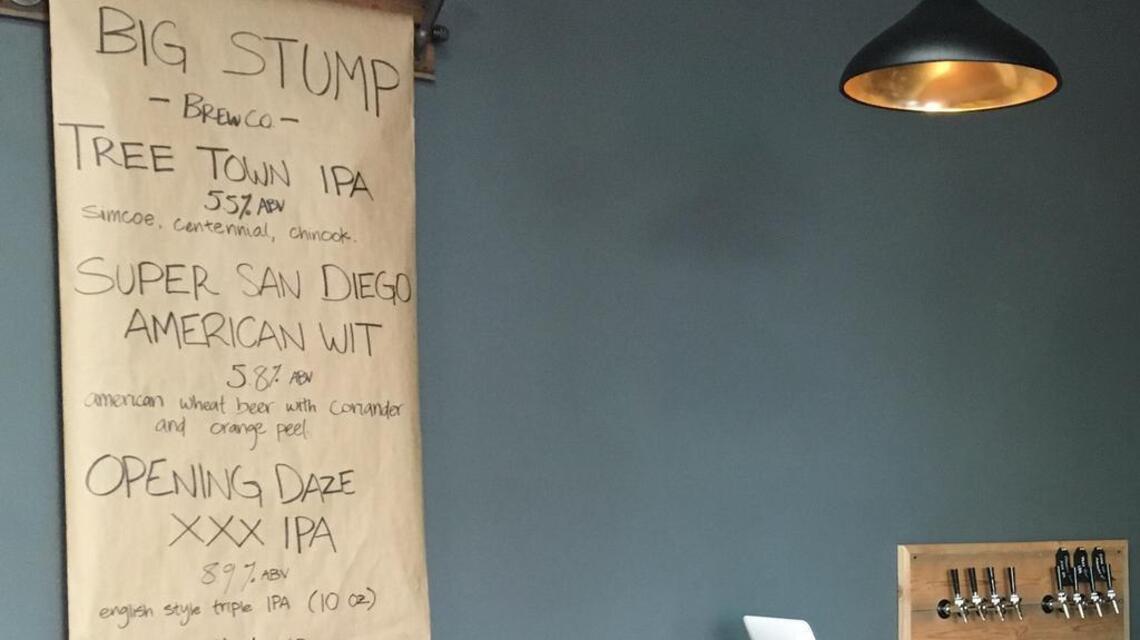 BIG STUMP
- BREW CO. -
TREE TOWN IPA
5.5% ABV
simcoe, centennial, chinook.
SUPER SAN DIEGO
AMERICAN WIT
5.8% ABV
american wheat beer with coriander
and orange peel.
OPENING DAZE
XXX IPA
8.9% ABV
english style triple IPA (10 oz)